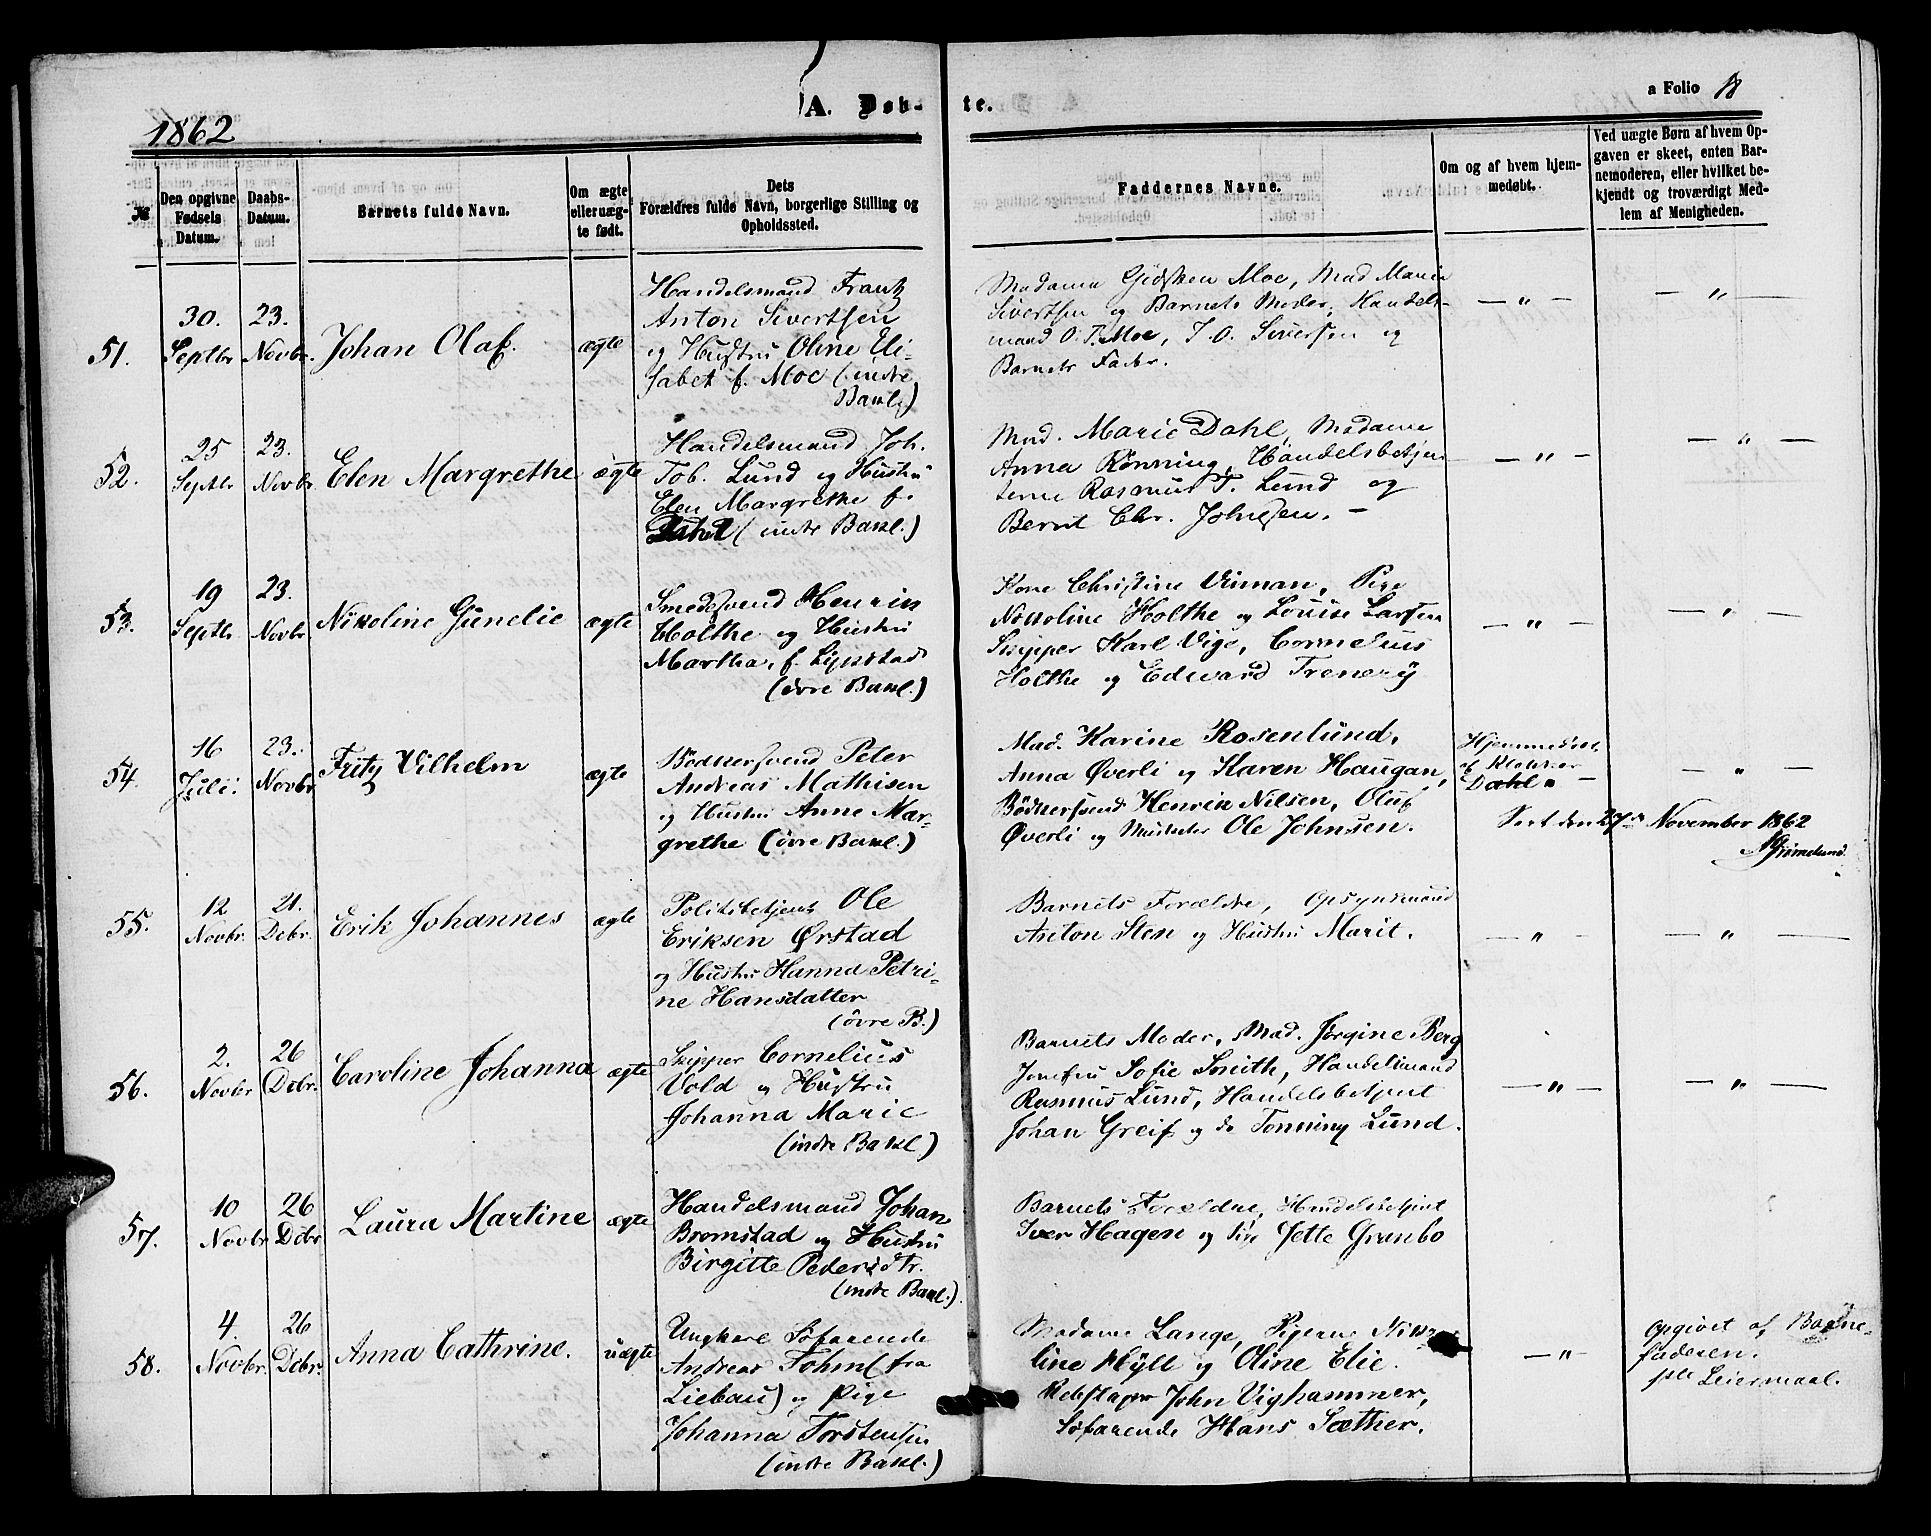 A. Døb- te.
a Folio 18
1862
№
Den opgivne Fødsels Datum.
Daabs-Datum.
Barnets fulde Navn.
Om ægte eller uæg-te født.
Dets
Forældres fulde Navn, borgerlige Stilling og
Opholdssted.
Faddernes Navne.
Om og af hvem hjem-
medøbt.
Ved uægte Børn af hvem Op-
gaven er skeet, enten Bar-
nemoderen, eller hvilket be-
kjendt og troværdigt Med-
lem af Menigheden.
51.
30. Septbr
23. Novbr.
Johan Olaf.
ægte
Handelsmand Frantz
Anton Sivertsen
og Hustru Oline Eli-
sabet f. Moe (indre
Bakl.)
Madame Gidsken Moe, Mad Marie
Sivertsen og Barnets Moder, Handels-
mand O. T. Moe, J. O. Sivertsen og
Barnets Fader.
— " —
— " —
52.
25 Septbr
23. Novbr
Elen Margrethe
ægte
Handelsmand Joh.
Tob. Lund og Hustru
Elen Margrethe f.
(indre Bakl.)
Mad. Marie Dahl, Madame
Anna Rønning, Handelsbetjen
terne Rasmus T. Lund og
Bernt Chr. Johnsen. —
— " —
— " —
53.
19 Septbr
23. Novbr
Nikoline Gunelie
ægte
Smedesvend Henrik
Holthe og Hustru
Martha, f. Lynstad
(øvre Bakl.)
Kone Christine Vinman, Pige
Nikoline Holthe og Louise Larsen
Skipper Karl Vige, Cornelius
Holthe og Edward Trenery
— " —
— " —
54.
16 Juli.
23. Novbr
Fritz Vilhelm
ægte
Bødkersvend Peter
Andreas Mathisen
og Hustru Anne Mar-
grethe (øvre Bakl.)
Mad. Karine Rosenlund,
Anna Øverli og Karen Haugan,
Bødkersvend Henrik Nilsen, Oluf
Øverli og Ole Johnsen.
Hjemmedøbt
af Klokker
Dahl. —
— " —
Seet den 27de November 1862
55.
12 Novbr.
21. Debr.
Erik Johannes
ægte
Politibetjent Ole
Eriksen Ørstad
og Hustru Hanna Petri-
ne Hansdatter
(øvre B.)
Barnets Forældre, Opsynsmand
Anton Sten og Hustru Marit.
— " —
— " —
56.
2. Novbr
26 Debr.
Caroline Johanna
ægte
Skipper Cornelius
Vold og Hustru
Johanna Marie
(indre Bakl)
Barnets Moder, Mad. Jørgine Berg
Jomfru Sofie Smith, Handelsmand
Rasmus Lund, Handelsbetjent
Johan Greif og do Tønning Lund.
— " —
— " —
57.
10 Novbr
26 Debr
Laura Martine
ægte
Handelsmand Johan
Bromstad og Hustru
Birgitte Pedersdtr.
(indre Bakl.)
Barnets Forældre, Handelsbetjent
Iver Hagen og Pige Jette Grønbo
58.
4. Novbr
26 Debr.
Anna Cathrine.
uægte
Ungkarl Søfarende
Andreas Tohm (fra
Liebau) og Pige
Johanna Torstensen
(indre Bakl.)
Madame Lange, Pigerne Niko
line Hyll og Oline Elie.
Rebslager John Vighammer,
Søfarende Hans Sæther.
— " —
Opgivet af Barne-
faderen.
Leiermaal.